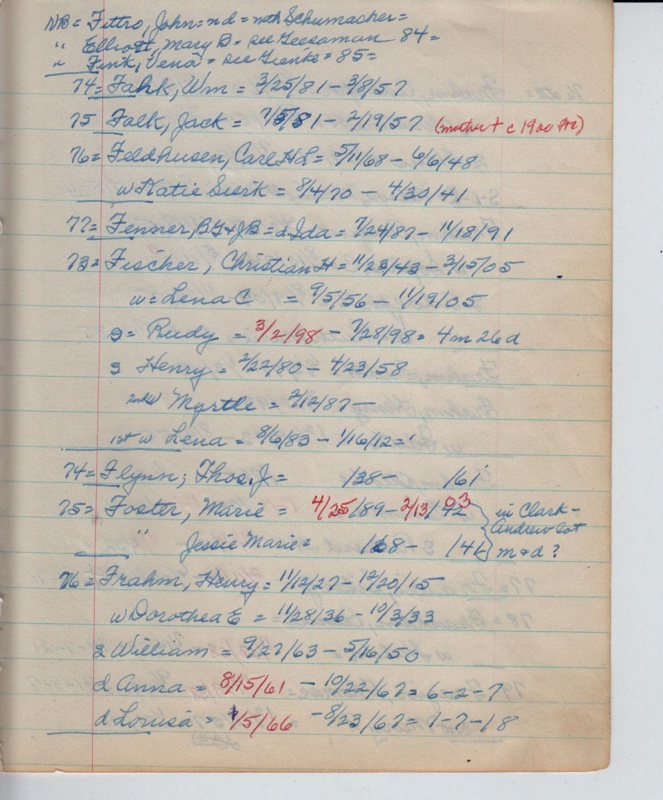 NB = Fettro, John = nd = with Schumacher =
" Elliott, Mary B = see Geesaman 84 =
" Fink, Vena = see Gienke = 85 =
74 = Fahk, Wm = 3/25/81 - 3/8/57
75 Falk, Jack = 7/5/81 - 2/19/57 (mother + c 1900 etc)
76 = Feldhusen, Carl H L = 5/11/68 - 6/6/48
w Katie Sierk = 8/4/70 - 4/30/41
77 = Fenner, BG + JB = d Ida = 7/24/87 - 11/18/91
73 = Fischer, Christian H = 11/23/43 - 3/15/05
w = Lena C = 9/5/56 - 11/19/05
s = Rudy = 3/2/98 - 7/28/98 = 4m 26d
s Henry = 2/22/80 - 4/23/58
2nd w Myrtle = 2/12/87 -
1st w Lena = 8/6/83 - 1/16/12 =
74 = Flynn; Thos. J = /38 - /61
75 = Foster, Marie = 4/25/89 - 2/13/42 03 in Clark -
" Jessie Marie = /68 - /46 Andrew lot m & d ?
76 = Frahm, Henry = 11/12/27 - 12/20/15
w Dorothea E = 11/28/36 - 10/3/33
s William = 9/27/63 - 5/16/50
d Anna = 8/15/61 - 10/22/67 = 6-2-7
d Louisa = 1/5/66 - 8/23/67 = 1-7-18